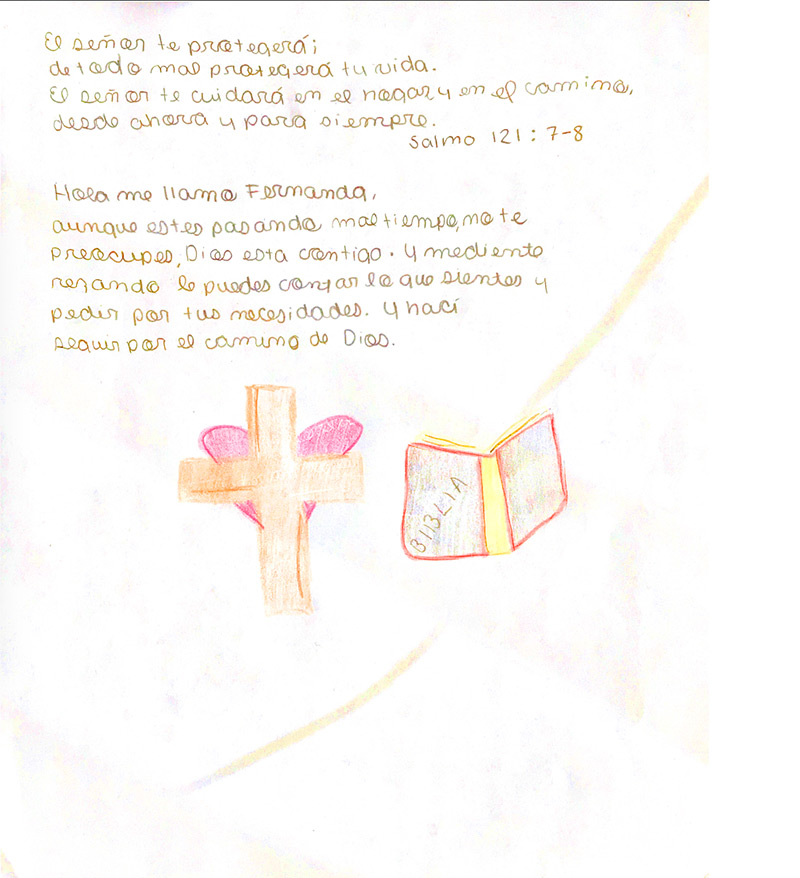 El señor te protegerá;
de todo mal protegerá tu vida.
El señor te cuidará en el hogar y en el camino,
desde ahora y para siempre.
Salmo 121: 7-8
Hola me llamo Fernanda,
aunque estes pasando mal tiempo, no te
preocupes, Dios esta contigo. Y mediente
rezando le puedes contar lo que sientes y
pedir por tus necesidades. Y hací
seguir por el camino de Dios.
BIBLIA